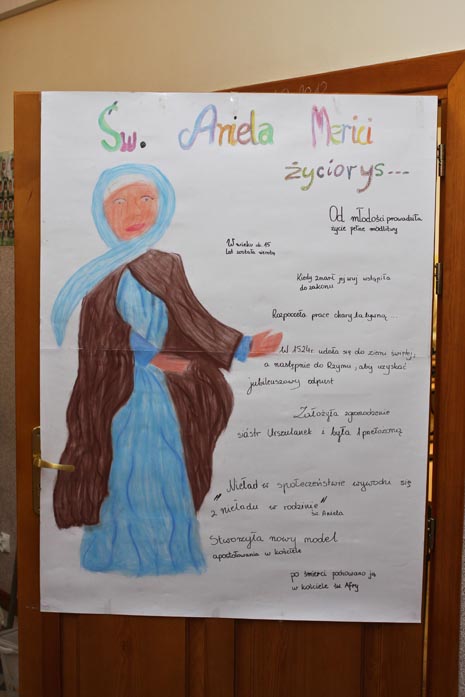 Św. Aniela Merici
życiorys...
Od młodości prowadziła
życie pełne modlitwy
W wieku ok 15
lat została sierotą
Kiedy zmarł jej wuj wstąpiła
do zakonu
Rozpoczęła prace charytatywną...
W 1524r udała się do ziemi świętej,
a następnie do Rzymu, aby uzyskać
jubileuszowy odpust
Założyła zgromadzenie
sióstr Urszulanek i była 1 przełożoną
"Nieład w społeczeństwie wywodzi się
z nieładu w rodzinie"
św. Aniela
Stworzyła nowy model
apostołowania w kościele
po śmierci pochowano ją
w kościele św Afry